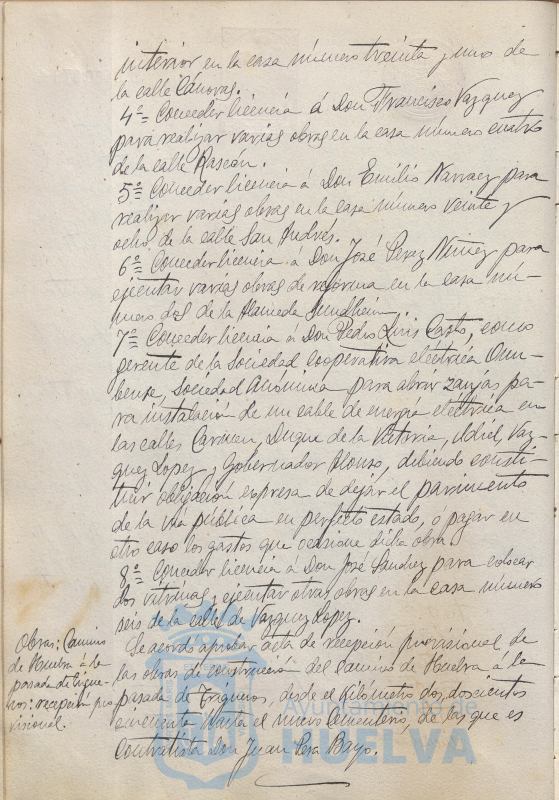 interior en la casa número treinta y uno de
la calle Cánovas.
4º= Conceder licencia á Don Francisco Vazquez
para realizar varias obras en la casa número cuatro
de la calle Rascón.
5º= Conceder licencia á Don Emilio Narvaez para
realizar varias obras en la casa número veinte y
ocho de la calle San Andrés.
6º= Conceder licencia á Don José Perez Nuñez para
ejecutar varias obras de reforma en la casa nú-
mero dos de la Alameda Sundheim.
7º= Conceder licencia á Don Pedro Luis Casto, como
gerente de la Sociedad cooperativa eléctrica Onu-
bense, Sociedad Anónima para abrir zanjas pa-
ra instalación de un cable de energía eléctrica en
las calles Carmen, Duque de la Victoria, Odiel, Vaz-
quez Lopez y Gobernador Alonso, debiendo consti-
tuir obligación expresa de dejar el pavimento
de la vía pública en perfecto estado, ó pagar en
otro caso los gastos que ocasione dicha obra.
8º= Conceder licencia á Don José Sanchez para colocar
dos vitrinas y ejecutar otras obras en la casa número
seis de la calle de Vazquez Lopez.
Obras: Camino
de Huelva á la
pasada de Trigue-
ros: recepción pro
visional.
Se acordó aprobar acta de recepción provisional de
las obras de construcción del camino de Huelva á la
pasada de Trigueros, desde el kilómetro dos, doscientos
cincuenta hasta el nuevo Cementerio, de las que es
contratista Don Juan Bayo.
Ayuntamiento de
HUELVA